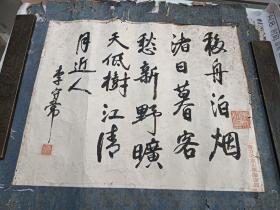 移舟泊烟
渚日暮客
愁新野旷
天低樹江清
月近人